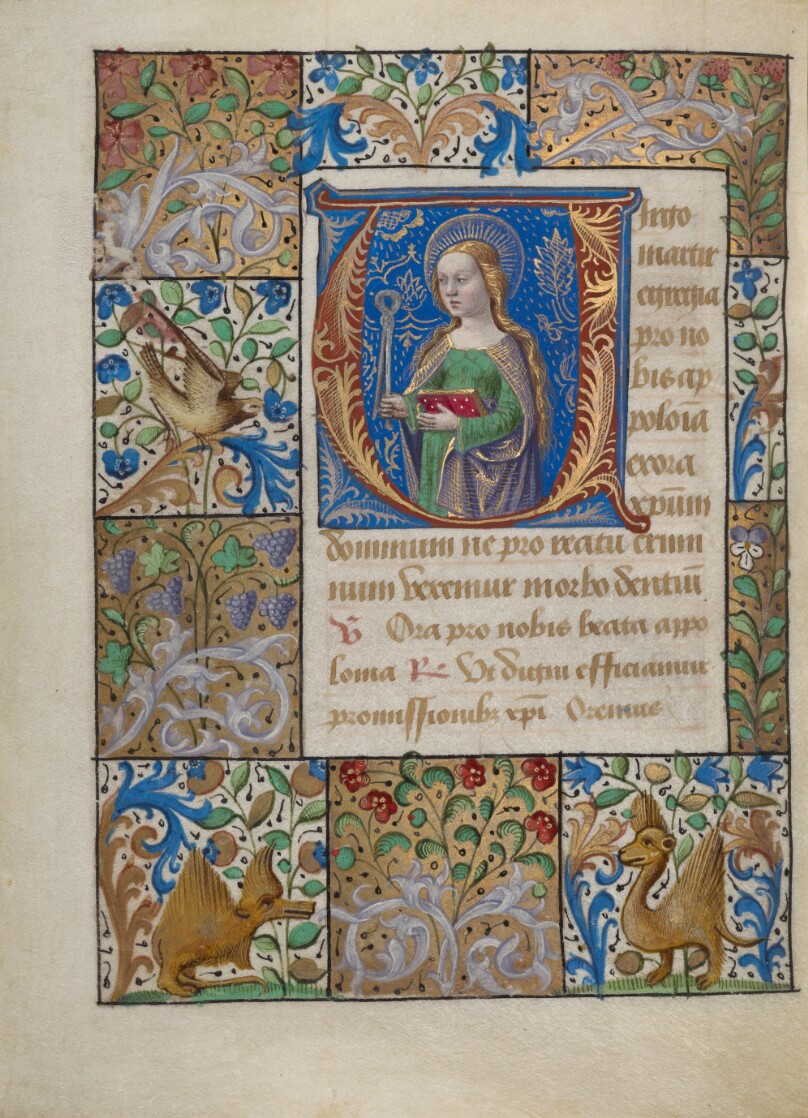 Virgo
martir
egregia
pro no
bis ap
poloīa
exora
xp̄um
dominum ne pro reatu crimi
num vexemur morbo dentiū
V Ora pro nobis beata appo
lonia R Ut digni efficiamur
promissionibꝫ xp̄i Oremus